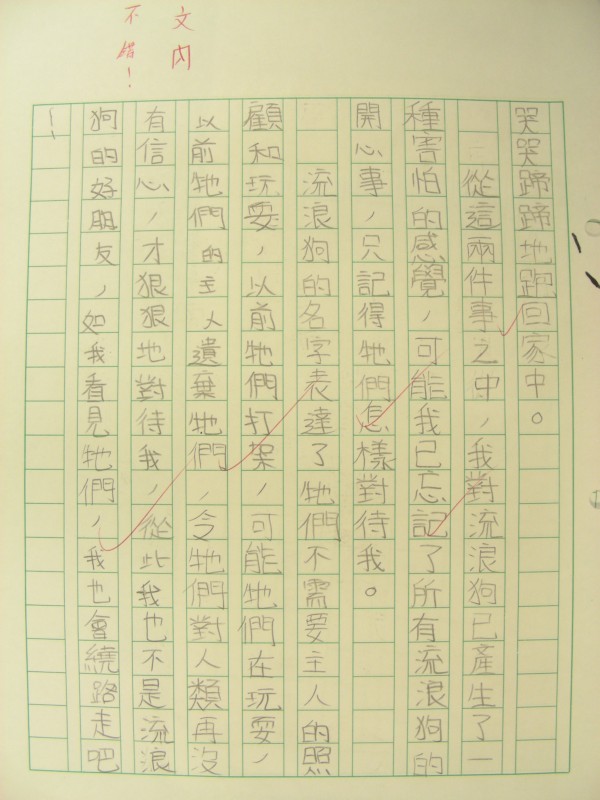 哭哭蹄蹄地跑回家中。
從這兩件事之中，我對流浪狗已產生了一
種害怕的感覺，可能我已忘記了所有流浪狗的
開心事，只記得牠們怎樣對待我。
流浪狗的名字表達了牠們不需要主人的照
顧和玩耍，以前牠們打架，可能牠們在玩耍，
以前牠們的主人遺棄牠們，令牠們對人類再沒
有信心，才狠狠地對待我，從此我也不是流浪
狗的好朋友，如我看見牠們，我也會繞路走吧
！
文內
不錯！